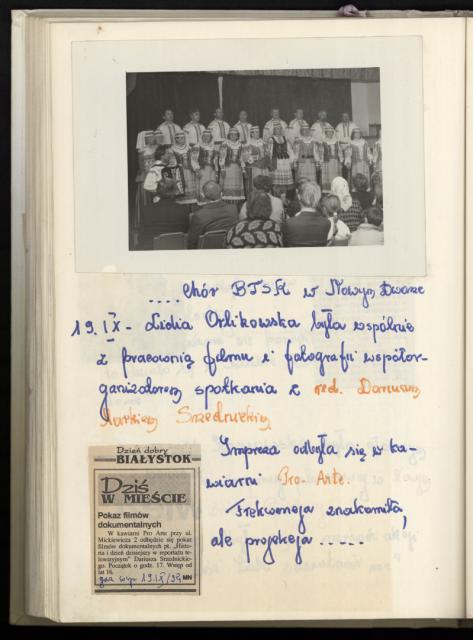 .... chór BTSK w Nowym Dworze
19.IX - Lidia Orlikowska była wspólnie
z pracownią filmu i fotografii współor-
ganizatorem spotkania z red. Dariuszem
Markiem Srzednickim
Impreza odbyła się w ka-
wiarni Pro-Arte.
Frekwencja znakomita,
ale projekcja .....
Dzień dobry
BIAŁYSTOK
Dziś
W MIEŚCIE
Pokaz filmów
dokumentalnych
W kawiarni Pro Arte przy ul.
Mickiewicza 2 odbędzie się pokaz
filmów dokumentalnych pt. „Histo-
ria i dzień dzisiejszy w reportażu te-
lewizyjnym” Dariusza Srzednickie-
go. Początek o godz. 17. Wstęp od
lat 16.
MN
gaz wyp 19.IX/94